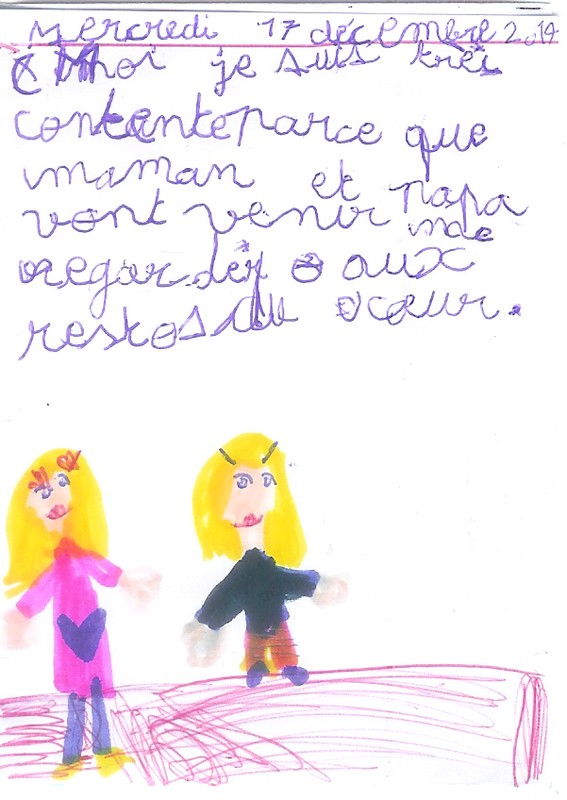 Mercredi 17 décembre 2014
Moi je suis très
contente parce que
maman et papa
vont venir me
regarder aux
restos du cœur.